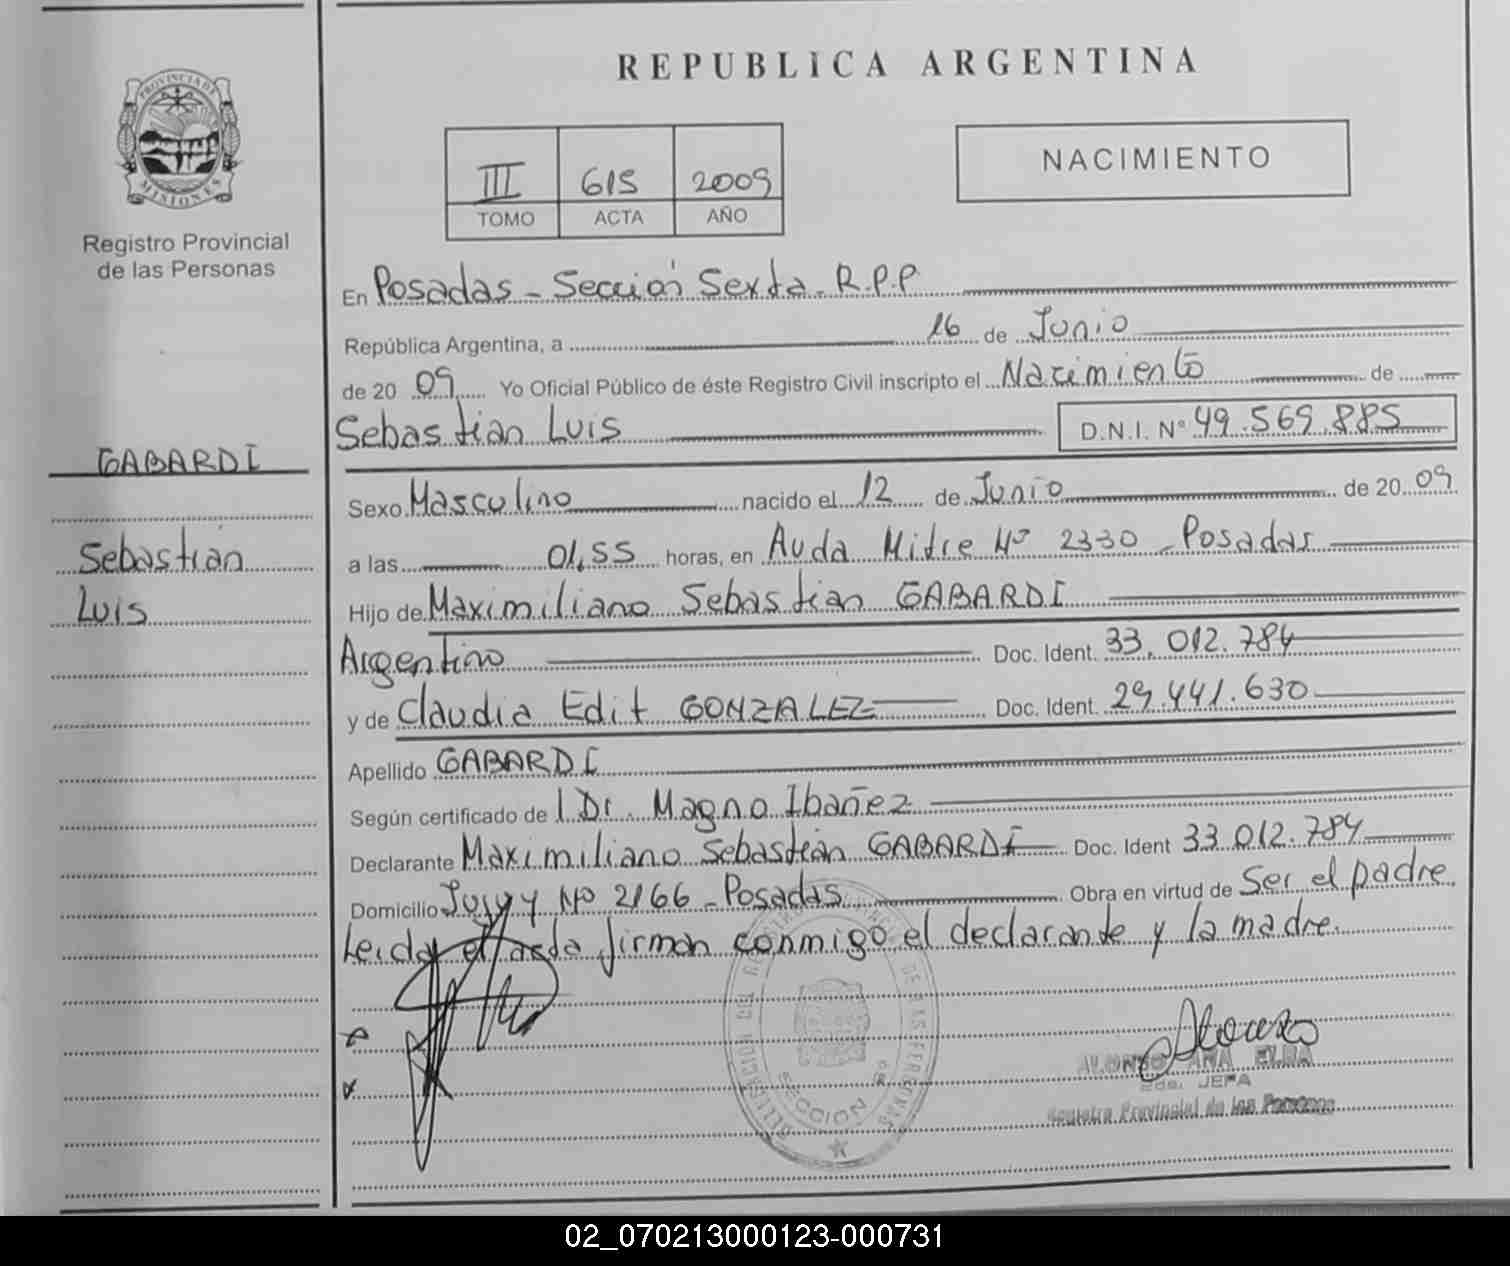 REPUBLICA ARGENTINA
PROVINCIA DE
MISIONES
Registro Provincial
de las Personas
III 615 2009
TOMO ACTA AÑO
NACIMIENTO
GABARDI
Sebastián
Luis
En Posadas - Sección Sexta - R.P.P.
República Argentina, a 16 de Junio
de 20 09 Yo Oficial Público de éste Registro Civil inscripto el Nacimiento de
Sebastián Luis D.N.I. Nº 49.569.885
Sexo Masculino nacido el 12 de Junio de 20 09
a las 01,55 horas, en Avda Mitre Nº 2330 - Posadas
Hijo de Maximiliano Sebastian GABARDI
Argentino Doc. Ident. 33.012.784
y de Claudia Edit GONZALEZ Doc. Ident. 29.441.630
Apellido GABARDI
Según certificado de l Dr. Magno Ibañez
Declarante Maximiliano Sebastián GABARDI Doc. Ident 33.012.784
Domicilio Jujuy Nº 2166 - Posadas Obra en virtud de Ser el padre.
Leida el acta firman conmigo el declarante y la madre.
SECCION 6º
ALONSO ANA ELBA
JEFA
Registro Provincial de las Personas
02_070213000123-000731